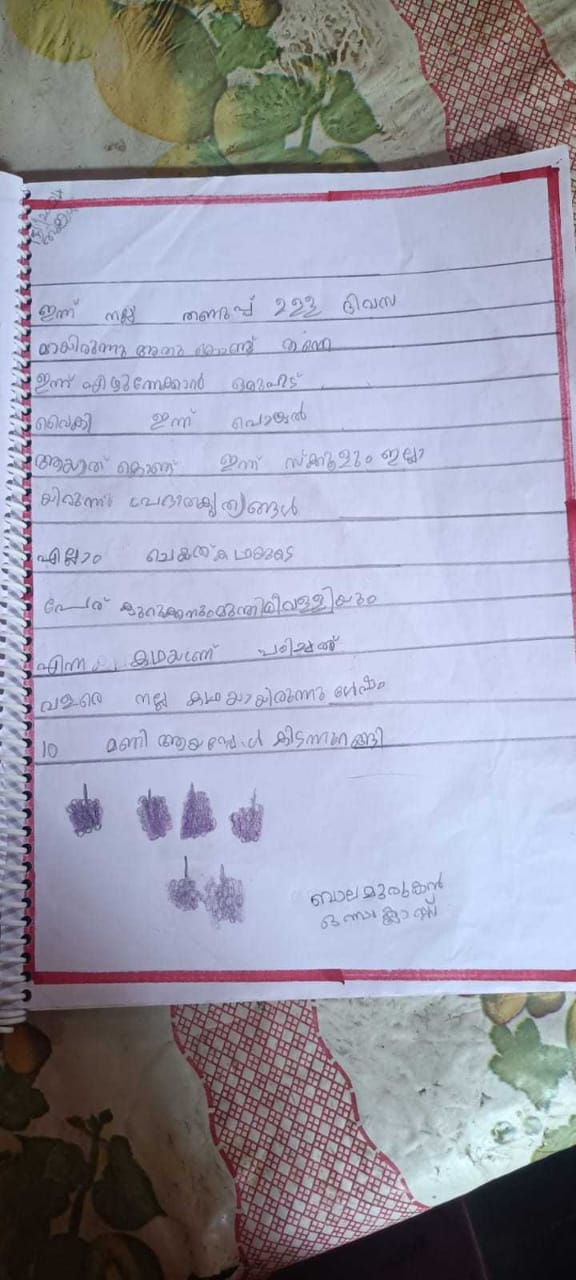 ഇന്ന് നല്ല തണുപ്പ് ഉള്ള ദിവസ
മായിരുന്നു അതു കൊണ്ട് തന്നെ
ഇന്ന് എഴുന്നേക്കാൻ ഒരുപാട്
വൈകി ഇന്ന് പൊങ്കൽ
ആയത് കൊണ്ട് ഇന്ന് സ്ക്കൂളും ഇല്ലാ
യിരുന്നു പ്രഭാതകൃത്യങ്ങൾ
എല്ലാം ചെയ്ത് കഥയുടെ
പേര് കുറുക്കനും മുന്തിരിവള്ളിയും
എന്ന കഥയാണ് പഠിച്ചത്
വളരെ നല്ല കഥയായിരുന്നു ശേഷം
10 മണി ആയപ്പോൾ കിടന്നുറങ്ങി
ബാലമുരുകൻ
ഒന്നാം ക്ലാസ്സ്